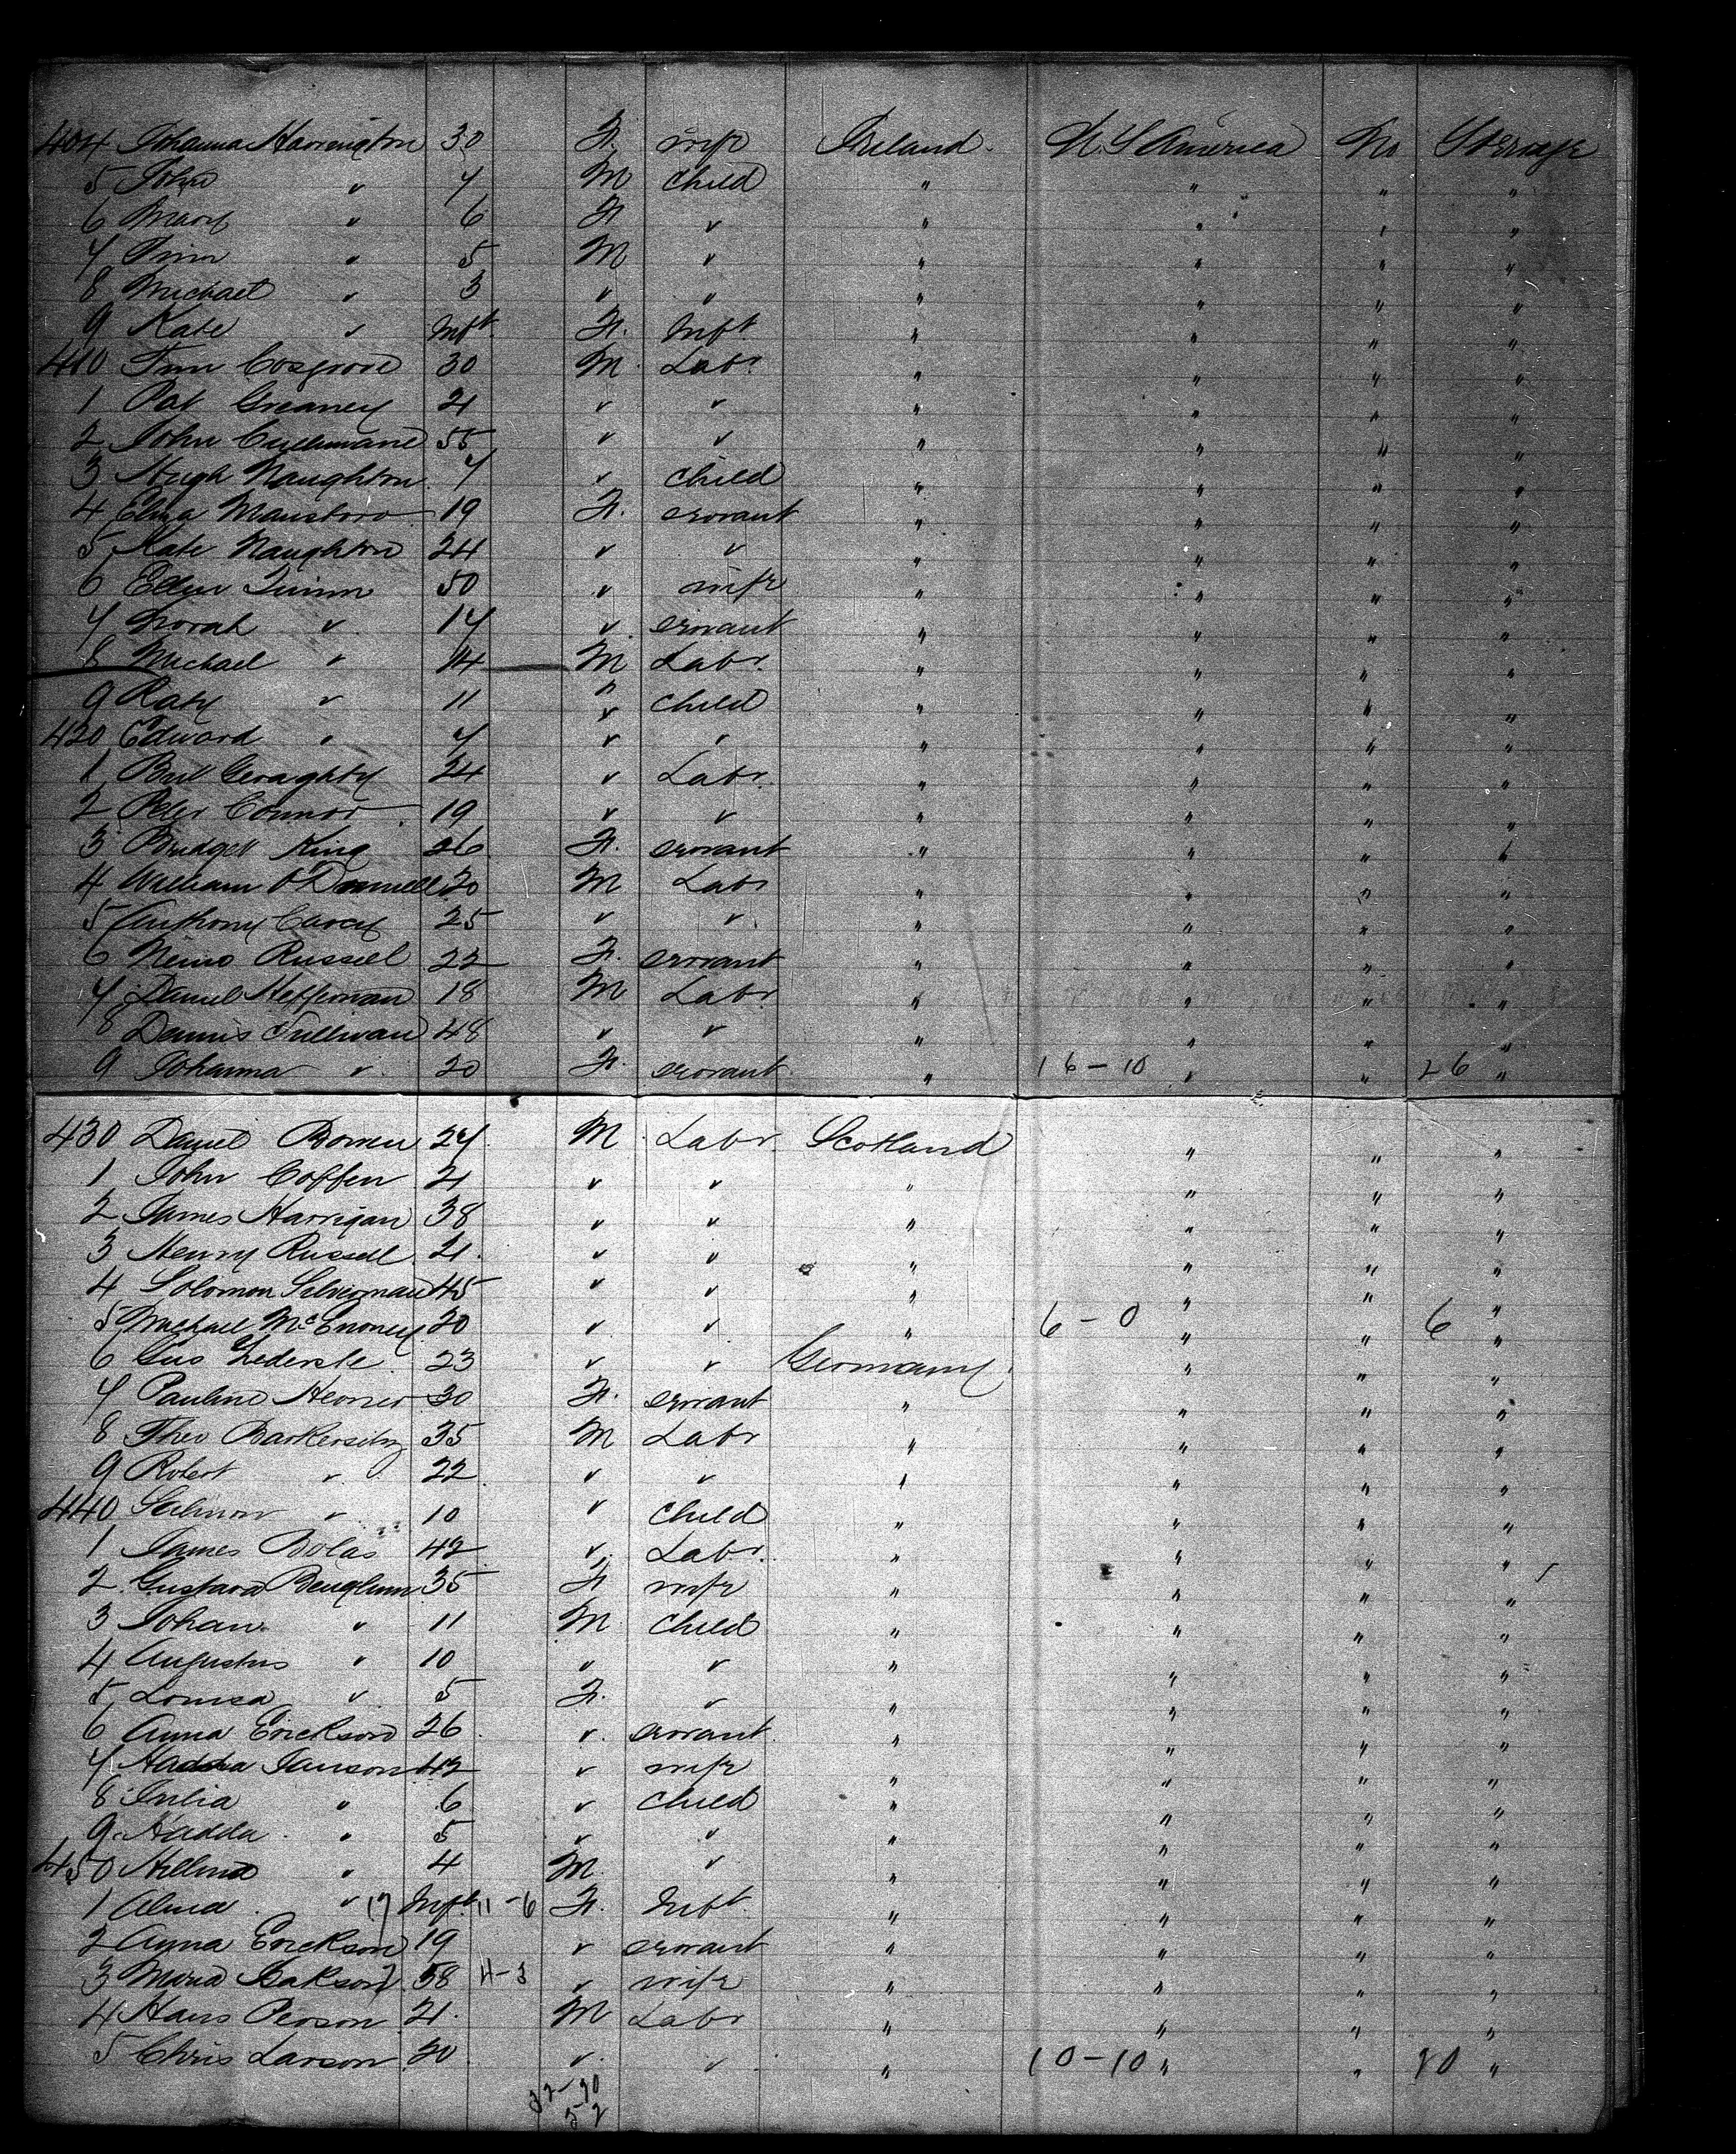 404 Johanna Harrington 30 F. wife Ireland. U. S America No Steerage
5 John " 7 M child " " " "
6 Mary " 6 F " " " " "
7 Tim " 5 M " " " " "
8 Michael " 3 " " " " " "
9 Kate " Inft. F. Inft. " " " "
410 Tim Cosgrove 30 M. Labr. " " " "
1 Pat Greaney 21 " " " " " "
2 John Cullinane 55 " " " " " "
3 Hugh Naughton 7 " child " " " "
4 Eliza 19 F. servant " " " "
5 Kate Naughton 24 " " " " " "
6 Ellen Quinn 50 " wife " " " "
7 Norah " 17 " servant " " " "
8 Michael " 14 M Labr. " " " "
9 Katy " 11 " child " " " "
420 Edward " 7 " " " " " "
1 Geraghty 24 " Labr. " " " "
2 Peter Connor 19 " " " " " "
3 Bridget King 26 F. servant " " " "
4 William O'Donnell 20 M Labr " " " "
5 Anthony 25 " " " " " "
6 Russell 22 F. servant " " " "
7 Daniel Heffernan 18 M Labr " " " "
8 Dennis Sullivan 48 " " " " " "
9 Johanna " 20 F. servant " 16-10 " " 26 "
430 Daniel 27 M. Labr. Scotland " " "
1 John Coffen 21 " " " " " "
2 James Harrigan 38 " " " " " "
3 Henry Russell 21. " " " " " "
4 Solomon 45 " " " " " "
5 Michael 20 " " " 6-0 " " 6 "
6 Gus 23 " " Germany. " " "
7 Pauline 30 F. servant " " " "
8 Theo 35 M Labr " " " "
9 Robert " 22 " " " " " "
440 " 10 " child " " " "
1 James Bolas 42 " Labr. " " " "
2 Gustava 35 F wife " " " "
3 Johan " 11 M. child " " " "
4 Augustus " 10 " " " " " "
5 Louisa " 5 F. " " " " "
6 Anna Erickson 26 " servant. " " " "
7 Hadda Janson 42 " wife " " " "
8 Julia " 6 " child " " " "
9 Hadda " 5 " " " " " "
450 " 4 M. " " " " "
1 Alma " 17 Inft. 11-6 F. Inft. " " " "
2 Anna Erickson 19 " servant " " " "
3 58 4-3 " wife " " " "
4 Hans Person 21. M Labr " " " "
5 Chris Larson 20 " " " 10-10 " " 20 "
32-20
52